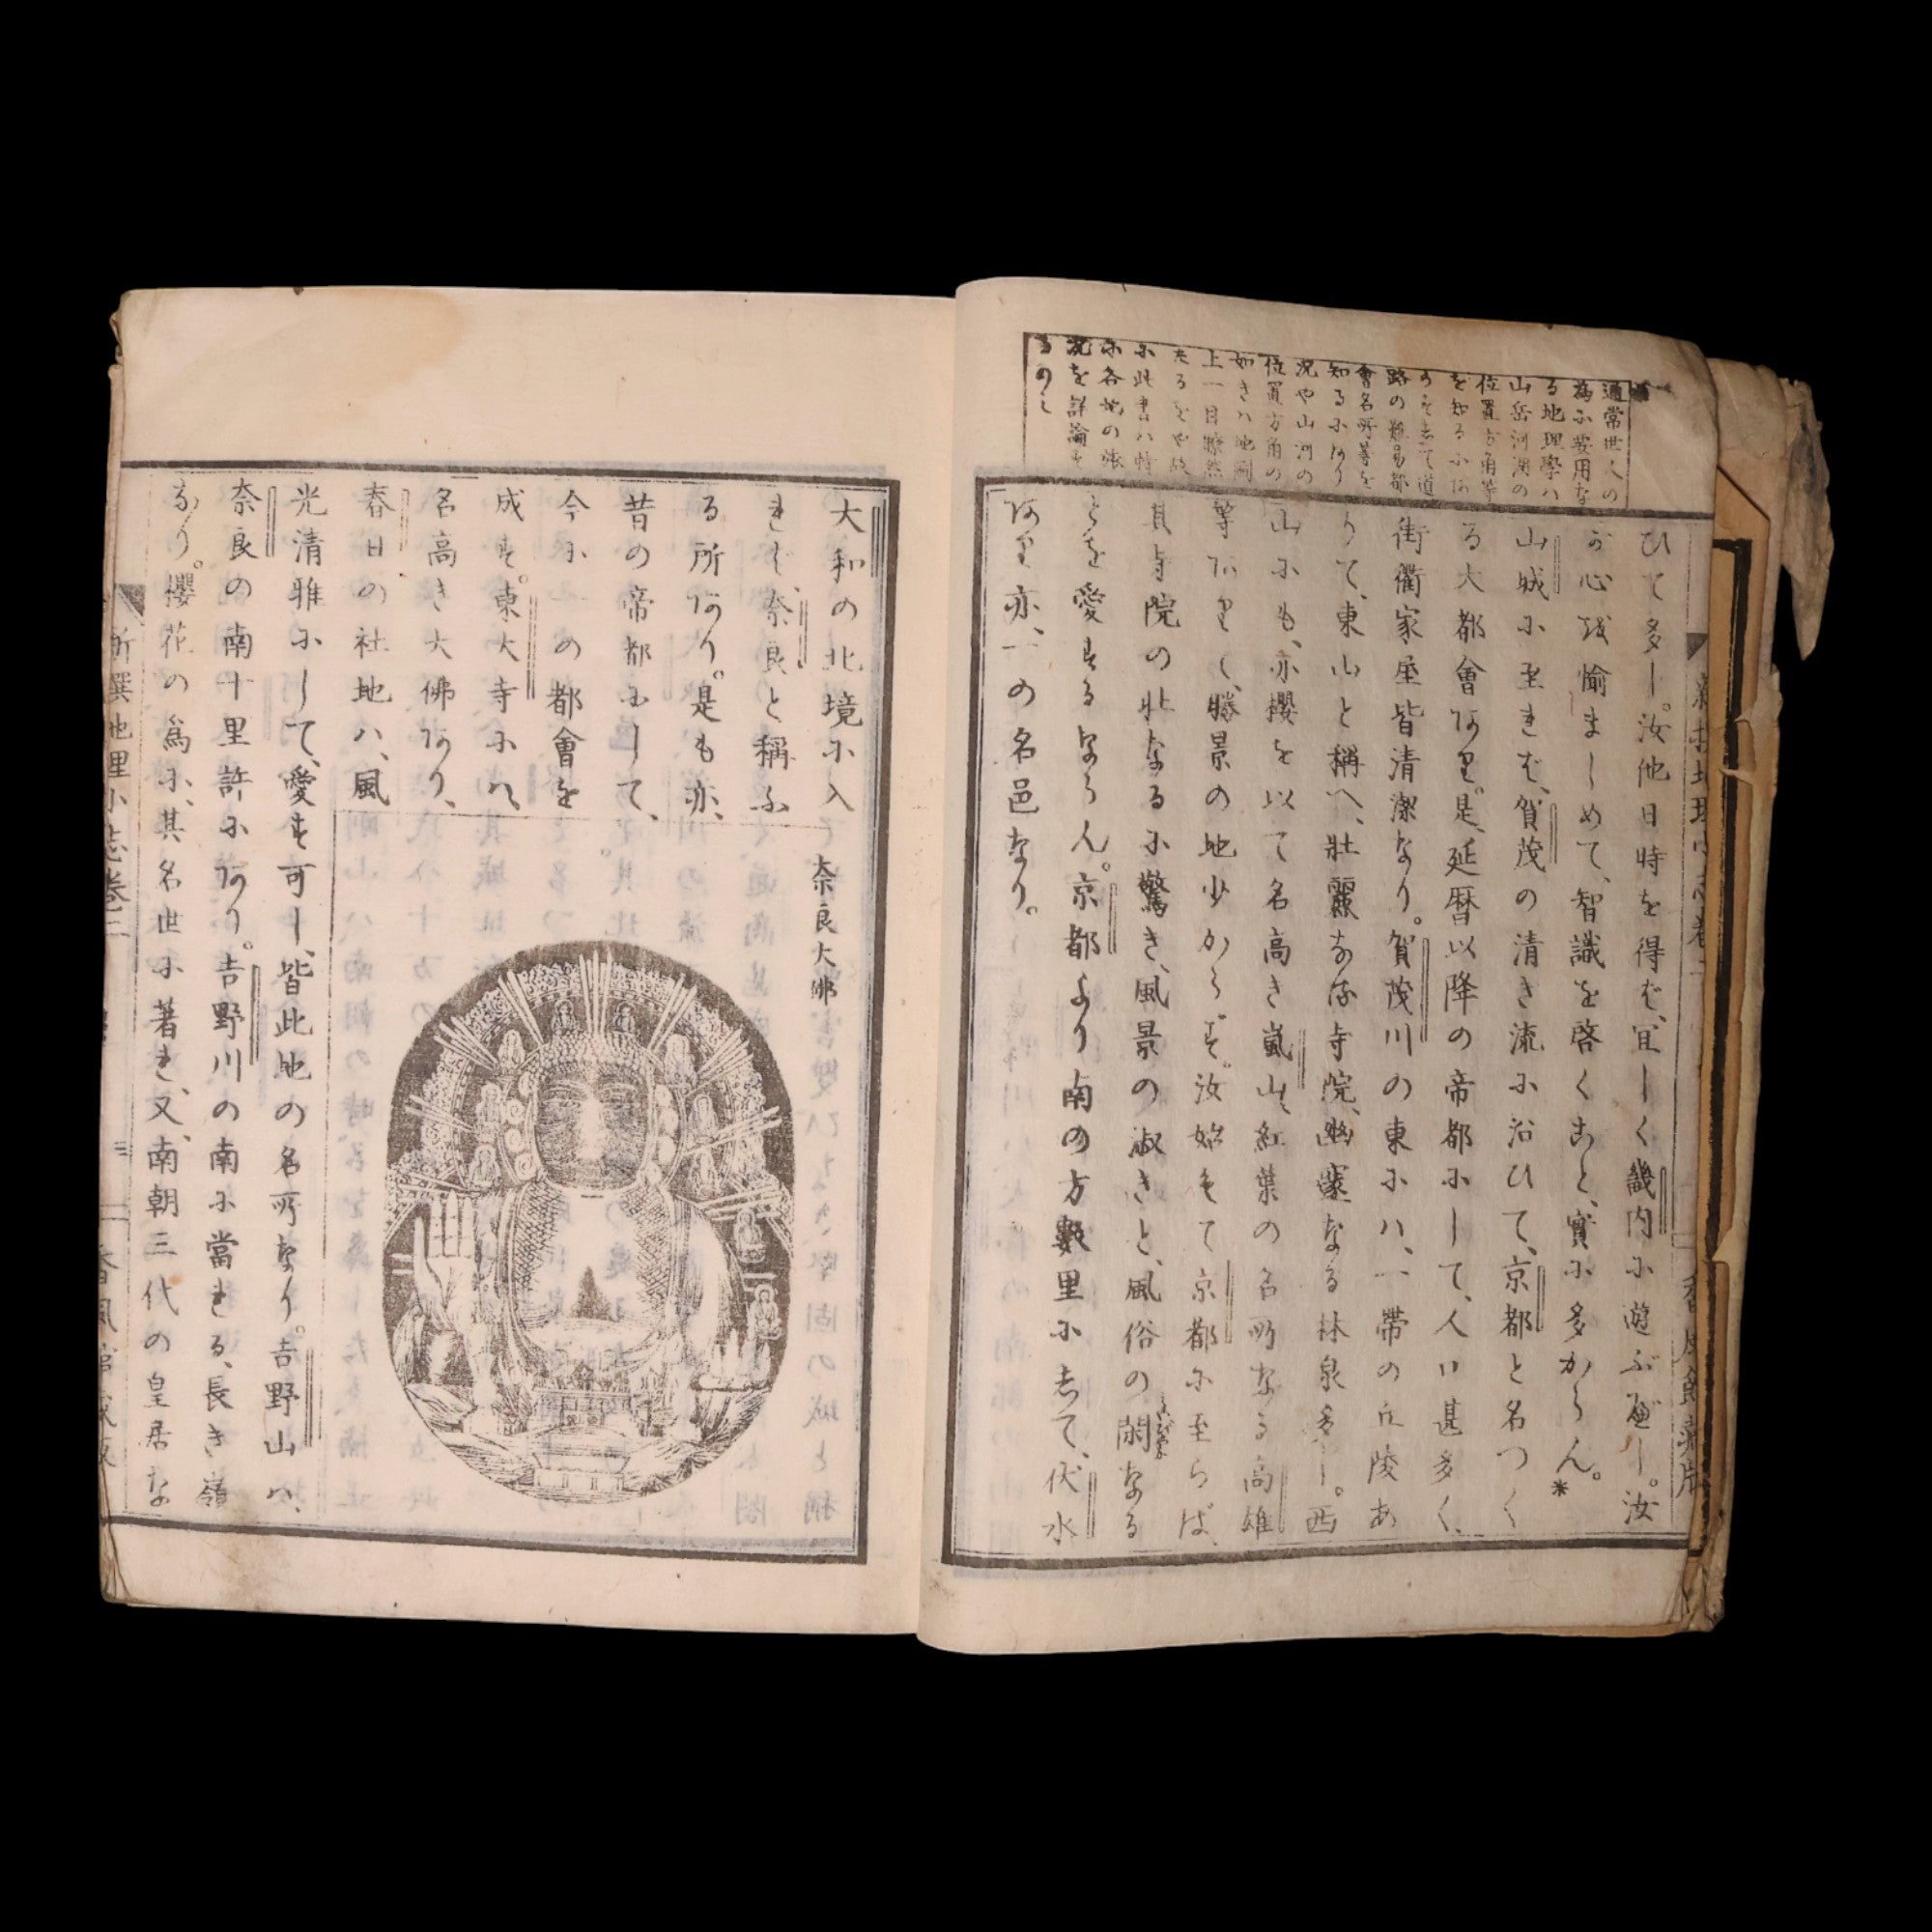 通常世人の
為に要用な
る地理學ハ
山岳河湖の
位置方角等
を知るにあ
らずして道
路の難易都
會名所等を
知るにあり
況や山河の
位置方角の
如きハ地圖
上一目瞭然
たるをや故
に此書ハ特
に各地の狀
況を詳論す
るのミ
ひて多し。汝他日時を得ば、宜しく畿内に遊ぶべし。汝
が心を愉ましめて、智識を啓くこと、實に多からん。*
山城に至れば、賀茂の清き流に沿ひて、京都と名つく
る大都會あり。是、延暦以降の帝都にして、人口甚多く、
街衢家屋皆清潔なり。賀茂川の東にハ、一帶の丘陵あ
りて、東山と稱へ、壯麗なる寺院、幽邃なる林泉多し。西
山にも、亦櫻を以て名高き嵐山、紅葉の名所なる高雄
等ありて、勝景の地少からず。汝始めて京都に至らば、
其寺院の壯なるに驚き、風景の淑きと、風俗の閑なる
とを愛するならん。京都より南の方數里にして、伏水
あり亦、一の名邑なり。
大和の北境に入
れば、奈良と稱ふ
る所あり。是も亦、
昔の帝都にして、
今に一の都會を
成す。東大寺にハ、
名高き大佛あり、
春日の社地ハ、風
奈良大佛
光清雅にして、愛す可し、皆此地の名所なり。吉野山ハ、
奈良の南十里許にあり。吉野川の南に當れる、長き嶺
なり。櫻花の爲に、其名世に著れ、又、南朝三代の皇居な
新撰地理小志卷三
香風館藏版